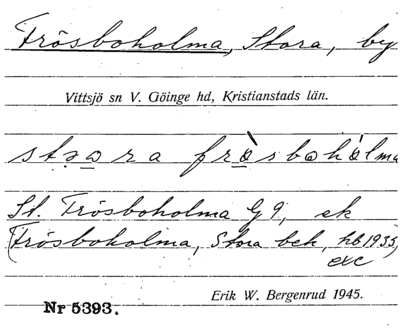 Frösboholma, Stora, by
Vittsjö sn V. Göinge hd, Kristianstads län.
stǝara fròsbohòlma
St. Frösboholma G 9, ek
(Frösboholma, Stora beb, hb 1935,
exc
Erik W. Bergenrud 1945.
Nr 5393.